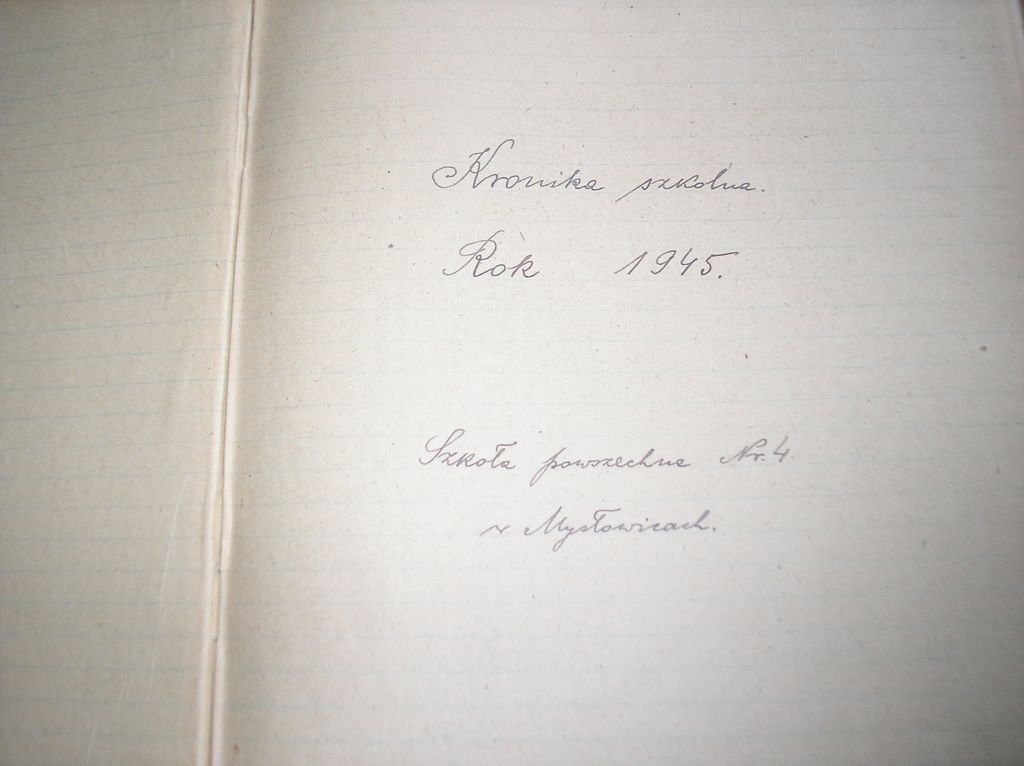 Kronika szkolna.
Rok 1945.
Szkoła powszechna Nr. 4
w Mysłowicach.